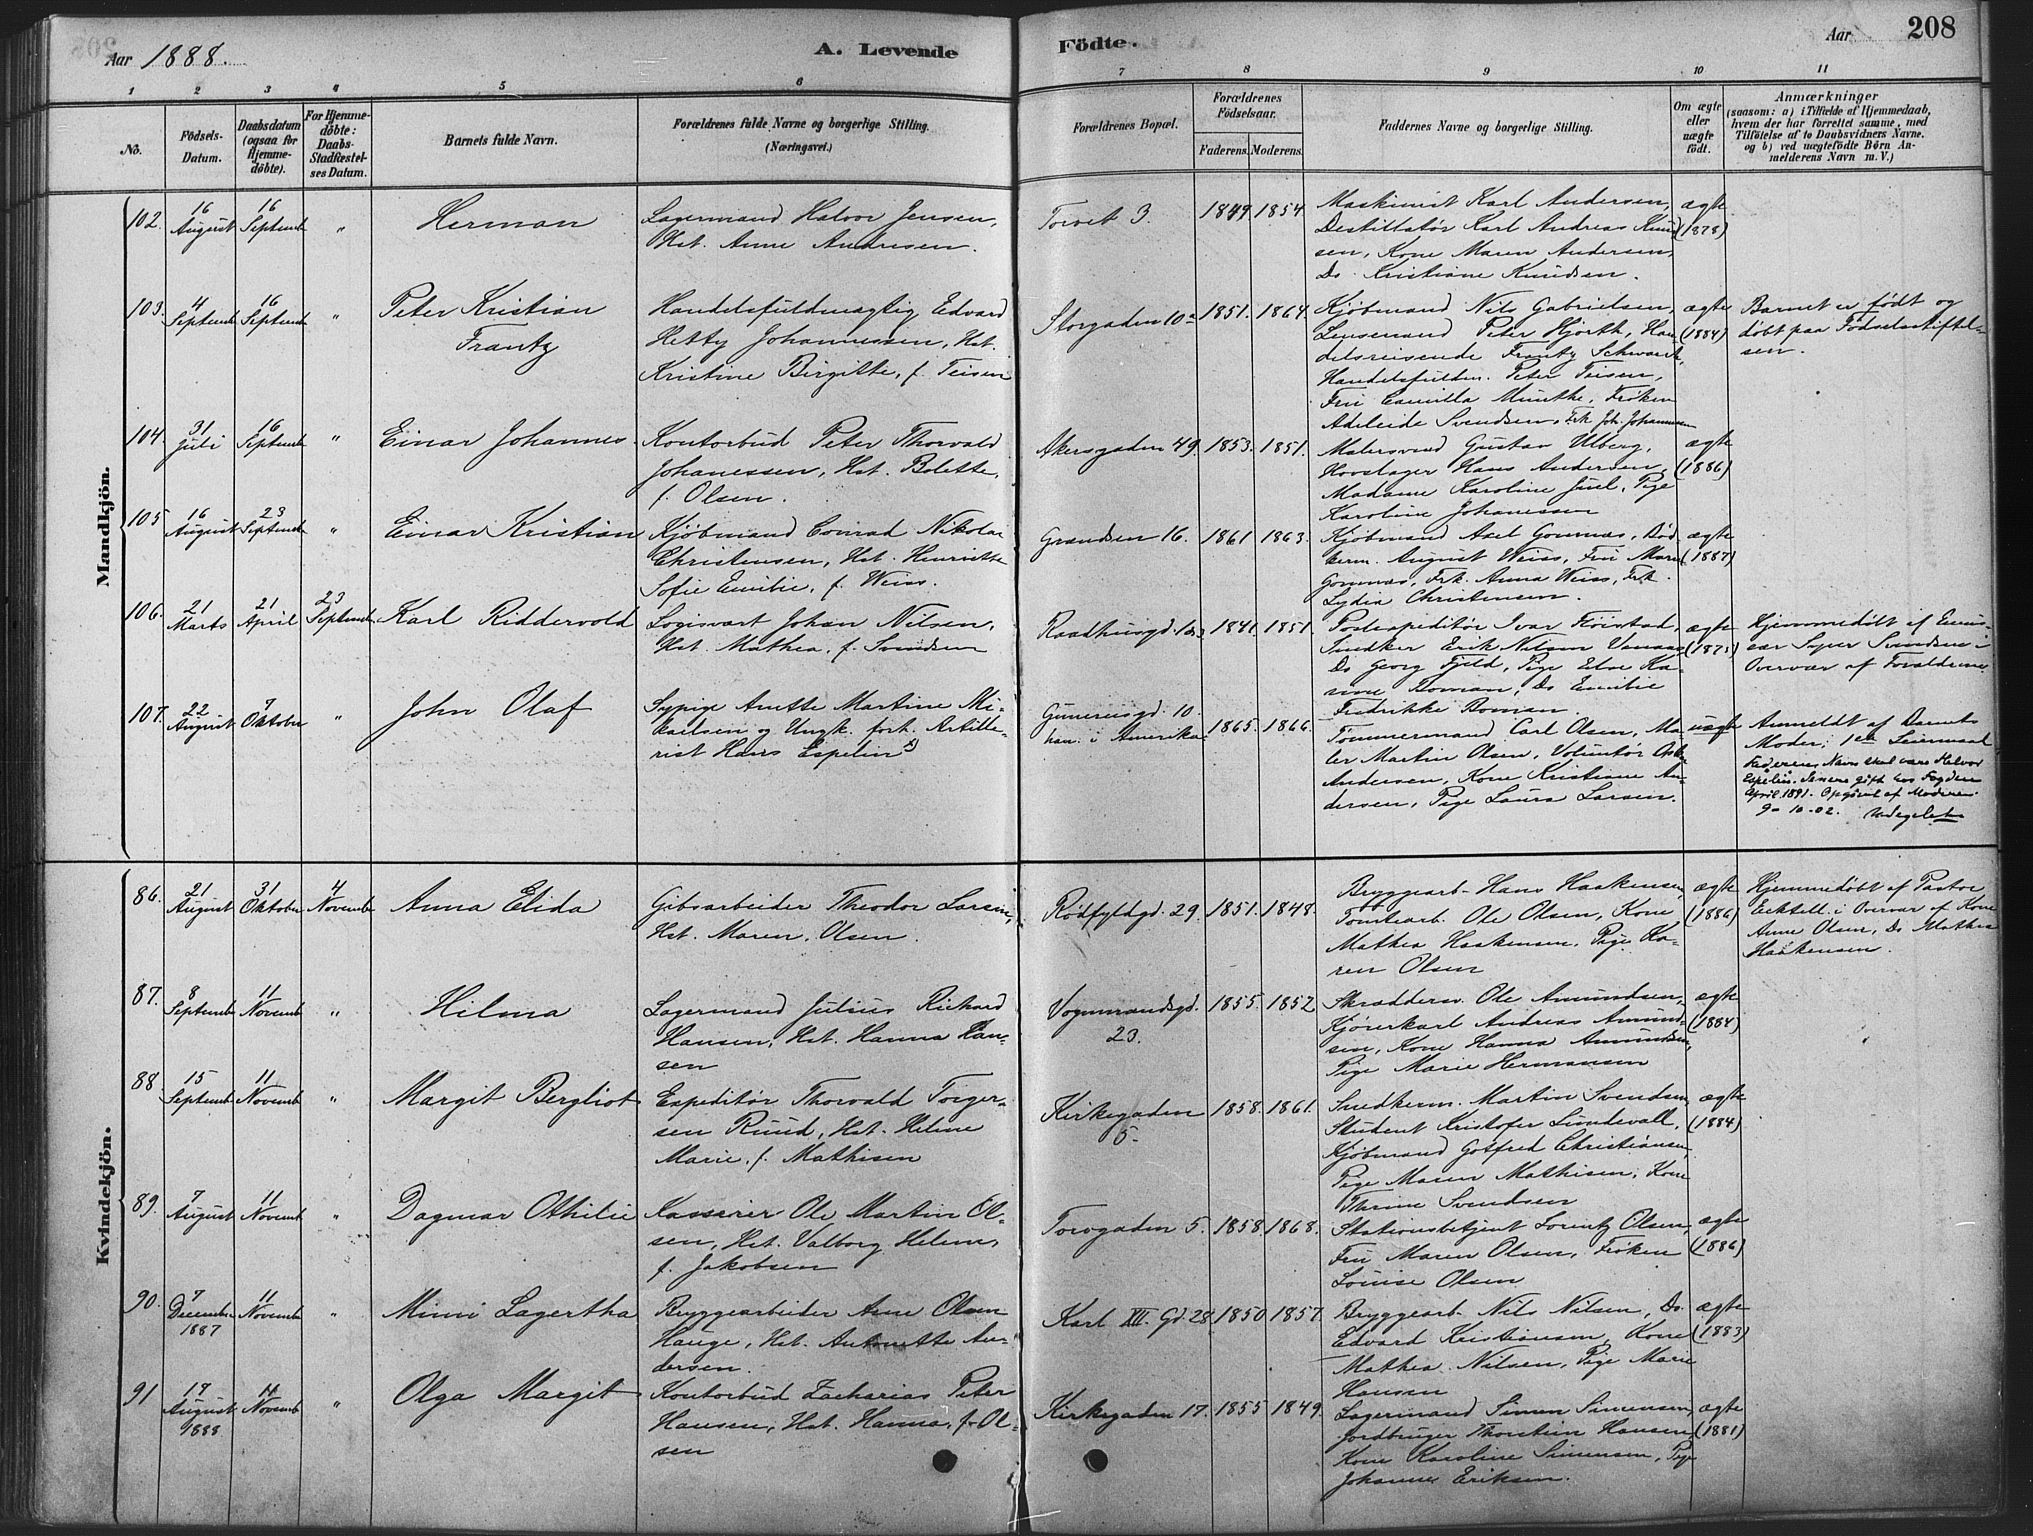 Aar 1888.
A. Levende
Födte.
Aar
208
1
2
3
4
5
6
7
8
9
10
11
No.
Födsels-
Datum.
Daabsdatum
(ogsaa for
Hjemme-
døbte).
For Hjemme-
døbte:
Daabs-
Stadfæstel-
ses Datum.
Barnets fulde Navn.
Forældrenes fulde Navne og borgerlige Stilling.
(Næringsvei.)
Forældrenes Bopæl.
Forældrenes
Fødselsaar.
Faderens.
Moderens.
Faddernes Navne og borgerlige Stilling.
Om ægte
eller
uægte
født.
Anmærkninger
(saasom: a) i Tilfælde af Hjemmedaab,
hvem der har forrettet samme, med
Tilføielse af to Daabsvidners Navne,
og b) ved uægtefødte Børn An-
melderens Navn m. V.)
Mandkjön.
102.
16
August
16
Septemb
"
Herman
Lagermand Halvor Jensen,
Hst. Anne Andresen.
Torvet 3.
1849.
1854.
Maskinist Karl Andersen,
Destillatør Karl Andreas Knud
sen, Kone Maren Andersen,
Do Kristiane Knudsen.
ægte
(1878)
103.
4
Septemb
16
Septemb
"
Peter Kristian
Frantz
Handelsfuldmægtig Edvard
Hetty Johannessen, Hst.
Kristine Birgitte, f. Teisen
Storgaden 10a
1851.
1864
Kjøbmand Nils Gabrielsen,
Lensmand Peter Hjorth, Han
delsreisende Frantz Schwartz,
Handelsfuldm. Peter Teisen,
Fru Camilla Munthe, Frøken
Adeleide Svendsen, Frk Joh. Johannesen
ægte
(1884)
Barnet er født og
døbt paa Fødselsstiftel-
sen.
104.
31
Juli
16
Septemb
"
Einar Johannes.
Kontorbud Peter Thorvald
Johanessen, Hst. Bolette,
f. Olsen.
Akersgaden 49
1853.
1851.
Malersvend Gustav Ulberg,
Hovslager Hans Andersen,
Madame Karoline Juel, Pige
Karoline Johanessen
ægte
(1886)
105
16
August
23
Septemb
"
Einar Kristian
Kjøbmand Conrad Nikolai
Christensen, Hst. Henriette
Sofie Emilie, f. Weiss.
Grændsen 16.
1861
1863.
Kjøbmand Axel Gomnæs, Bød
kerm. August Weiss, Fru Marie
Gomnæs, Frk. Anna Weiss, Frk.
Lydia Christensen.
ægte
(1887)
106.
21
Marts
21
April
23
Septemb
Karl Riddervold
Logisvært Johan Nilsen,
Hst. Mathea, f. Svendsen
Raadhusgd.
1841
1851
Postexpeditør Ivar Fløistad,
Snedker Erik Nilsen
Do Georg Fjeld, Pige Elve Ka-
sine Boman, Do Emilie
Fredrikke Boman.
ægte
Hjemmedøbt af Emis-
ær Syver Svendsen i
Overvær af Forældrene
107.
22
August
7
Oktober
"
John Olaf
Sypige Anette Martine Mi-
kaelsen og Ungk. fort. Artille-
rist Hans Espelin
Gunerusgd. 10.
han: i Amerika
1865.
1866.
Tømmermand Carl Olsen, Ma
ler Martin Olsen, Voluntør
Andersen, Kone Kristiane An-
dersen, Pige Laura Larsen.
uægte
Anmeldt af Barnets
Moder; 1ste Leiermaal
Faderens Navn skal være Halvor
Espelin. Senere gift hos Fogden
April 1891. Opgivet af Moderen
9-10-02.
Kvindekjön.
86.
21
August
31
Oktober
4
Novemb
Anna Elida
Gibsarbeider Theodor Larsen,
Hst. Maren, Olsen.
Rødfyldgd. 29.
1851.
1848.
Bryggearb. Hans Haakensen,
Tomtearb. Ole Olsen, Kone
Mathea Haakensen, Pige Ka-
ren Olsen
ægte
(1886)
Hjemmedøbt af Pastor
Eckell. i Overvær af Kone
Anne Olsen, Do Mathea
Haakensen.
87.
8
Septemb
11
Novemb
"
Hilma
Lagermand Julius Richard
Hansen, Hst. Hanna Han-
sen
Vognmandsgd.
23.
1855.
1852
Skrædderm. Ole Amundsen,
Kjørerkarl Andreas Amund-
sen, Kone Hanna Amundsen,
Pige Marie Hermansen
ægte
(1884)
88
15
Septemb
11
Novemb
"
Margit Bergliot
Expeditør Thorvald Torger-
sen Ruud, Hst. Helene
Marie, f. Mathisen
Kirkegaden
5.
1858.
1861.
Snedkerm. Martin Svendsen,
Student Kristofer Sundevall,
Kjøbmand Gotfred Christiansen,
Pige Maren Mathisen, Kone
Thrine Svendsen
ægte
(1884)
89.
7
August
11
Novemb
"
Dagmar Othilie
Kasserer Ole Martin Ol-
sen, Hst. Valborg Helene,
f. Jakobsen
Torvgaden 5.
1858.
1868.
Stationsbetjent Lorentz Olsen,
Fru Maren Olsen, Frøken
Louise Olsen
ægte
(1886)
90.
7
December
1887
11
Novemb
"
Mimi Lagertha
Bryggearbeider Arne Olsen
Hauge, Hst. Antonette An-
dersen.
Karl XII. Gd. 28
1850
1857.
Bryggearb. Nils Nilsen, Do
Edvard Kristiansen, Kone
Mathea Nilsen, Pige Marie
Hansen
ægte
(1883)
91
17
August
1888
11
Novemb
"
Olga Margit
Kontorbud Zacharias Peter
Hansen, Hst. Hanna, f. Ol-
sen
Kirkegaden 17.
1855
1849.
Lagermand Simen Simensen,
Jordbruger Thorstein Hansen,
Kone Karoline Simensen, Pige
Johanne Eriksen.
ægte
(1881)